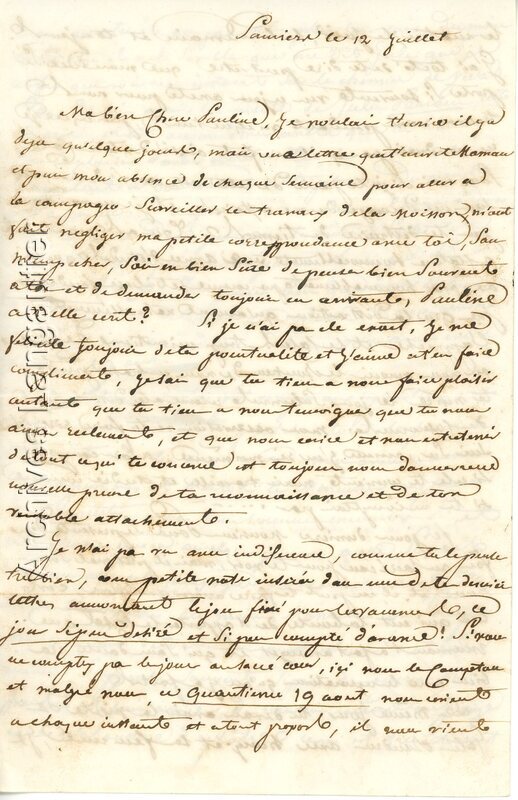 Pamiers le 12 Juillet
Ma bien Chere Pauline, Je voulait t'ecrire il y a
deja quelques jours, mais une lettre que t'ecrit Maman
et puis mon absence de chaque Semaine pour aller a
la campagne Surveiller les travaux de la Moisson, m'ont
fait negliger ma petite correspondance avec toi, San
m'empecher, Sois en bien Sure de penser bien Souvent
a toi et de demander toujour en arrivant, Pauline
a t'elle ecrit? Si je n'ai pas ete exact, Je me
felicite toujour de ta ponctualité et J'aime a t'en faire
compliments, Je sai que tu tien a nous faire plaisir
autant que tu tien a nous temoigner que tu nous
aime reelement, et que nous ecrire et nous entretenir
de tout ce qui te concerne est toujour nous donner une
nouvelle preuve de ta reconnaissance et de ton
veritable attachement.
Je n'ai pas vu avec indiference, comme tu le pense
tres bien, une petite note inserée dans une de tes derniere
lettres annoncant le jour fixé pour les vacances, ce
jour si peu desiré et si peu compté d'avance! Si vous
ne comptez pas les jour au sacré coeur, ici nous les Comptons
et malgré nous, ce quantieme 19 aout nous revient
a chaque instant et a tout propos, il nous vient
Archives Lamarque